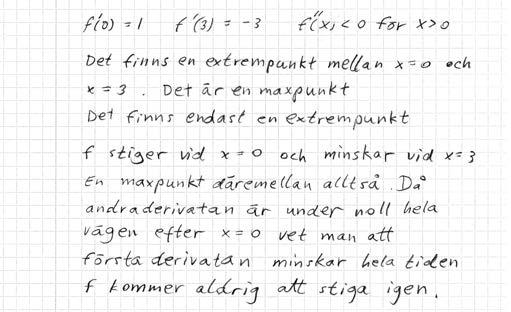 f'(0) = 1 f'(3) = -3 f''(x) < 0 för x>0
Det finns en extrempunkt mellan x=0 och
x = 3 . Det är en maxpunkt
Det finns endast en extrempunkt
f stiger vid x = 0 och minskar vid x=3
En maxpunkt däremellan alltså. Då
andraderivatan är under noll hela
vägen efter x=0 vet man att
första derivatan minskar hela tiden
f kommer aldrig att stiga igen.